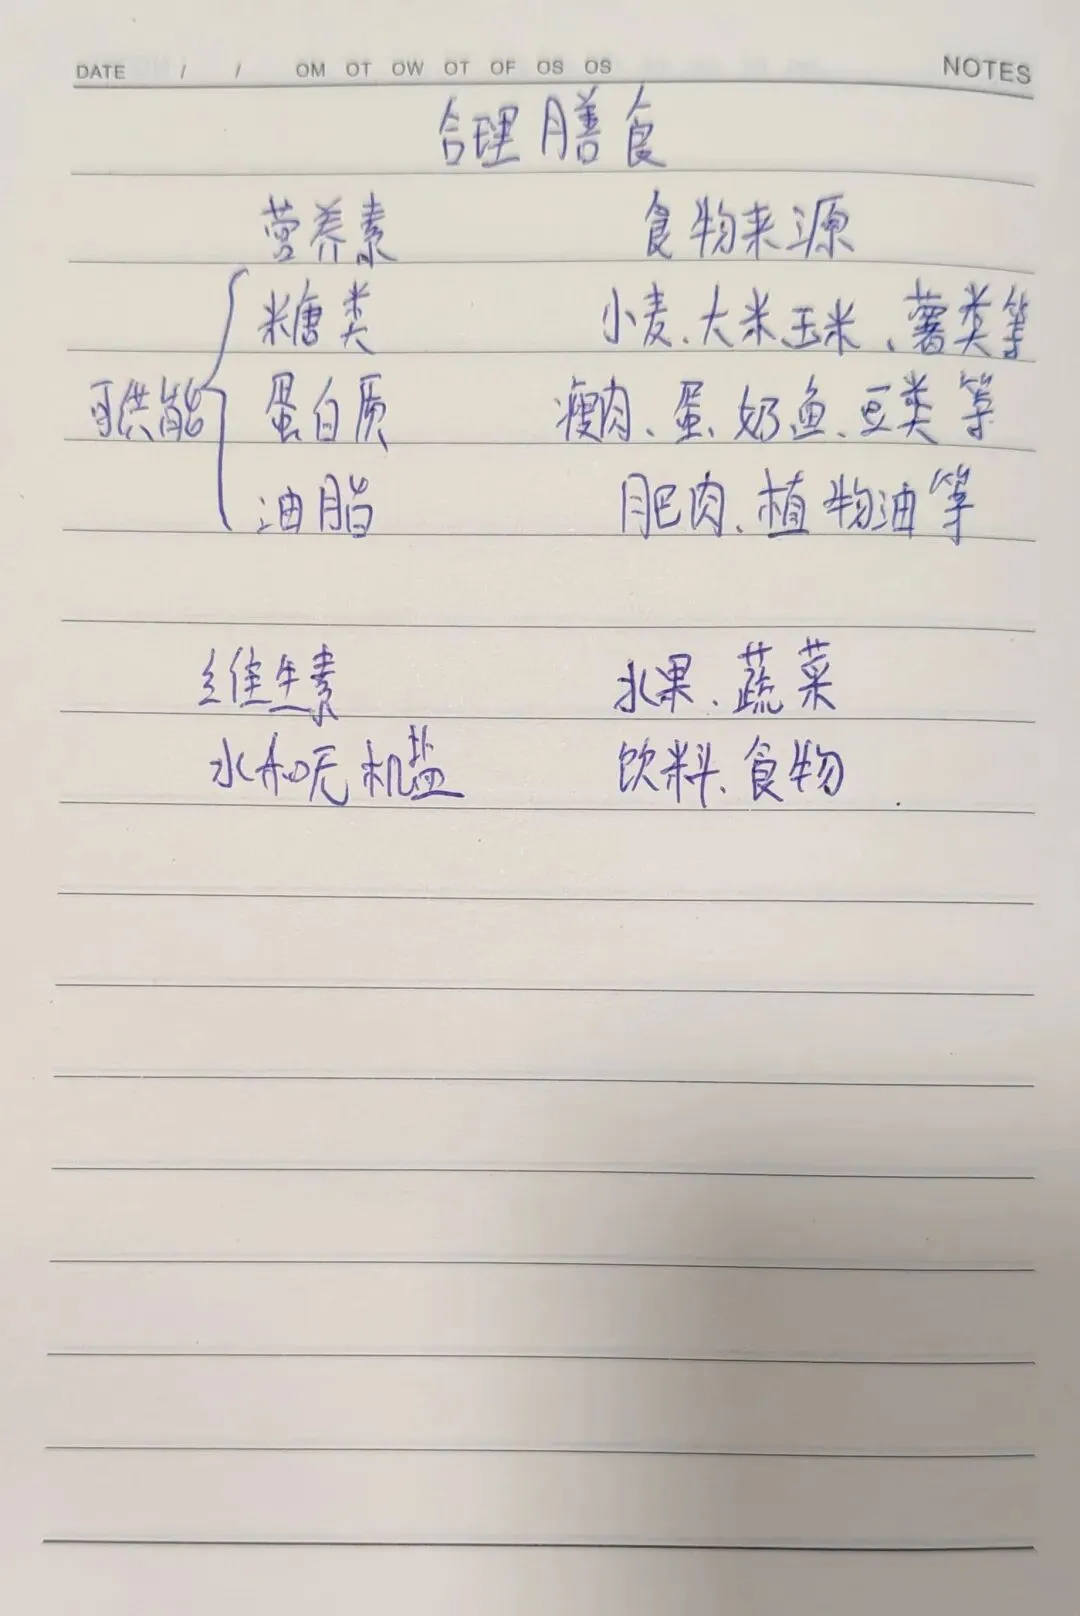 DATE / / OM OT OW OT OF OS OS NOTES
合理膳食
营养素 食物来源
糖类 小麦、大米玉米、薯类等
可供能 蛋白质 瘦肉、蛋、奶鱼、豆类等
油脂 肥肉、植物油等
维生素 水果、蔬菜
水和无机盐 饮料、食物